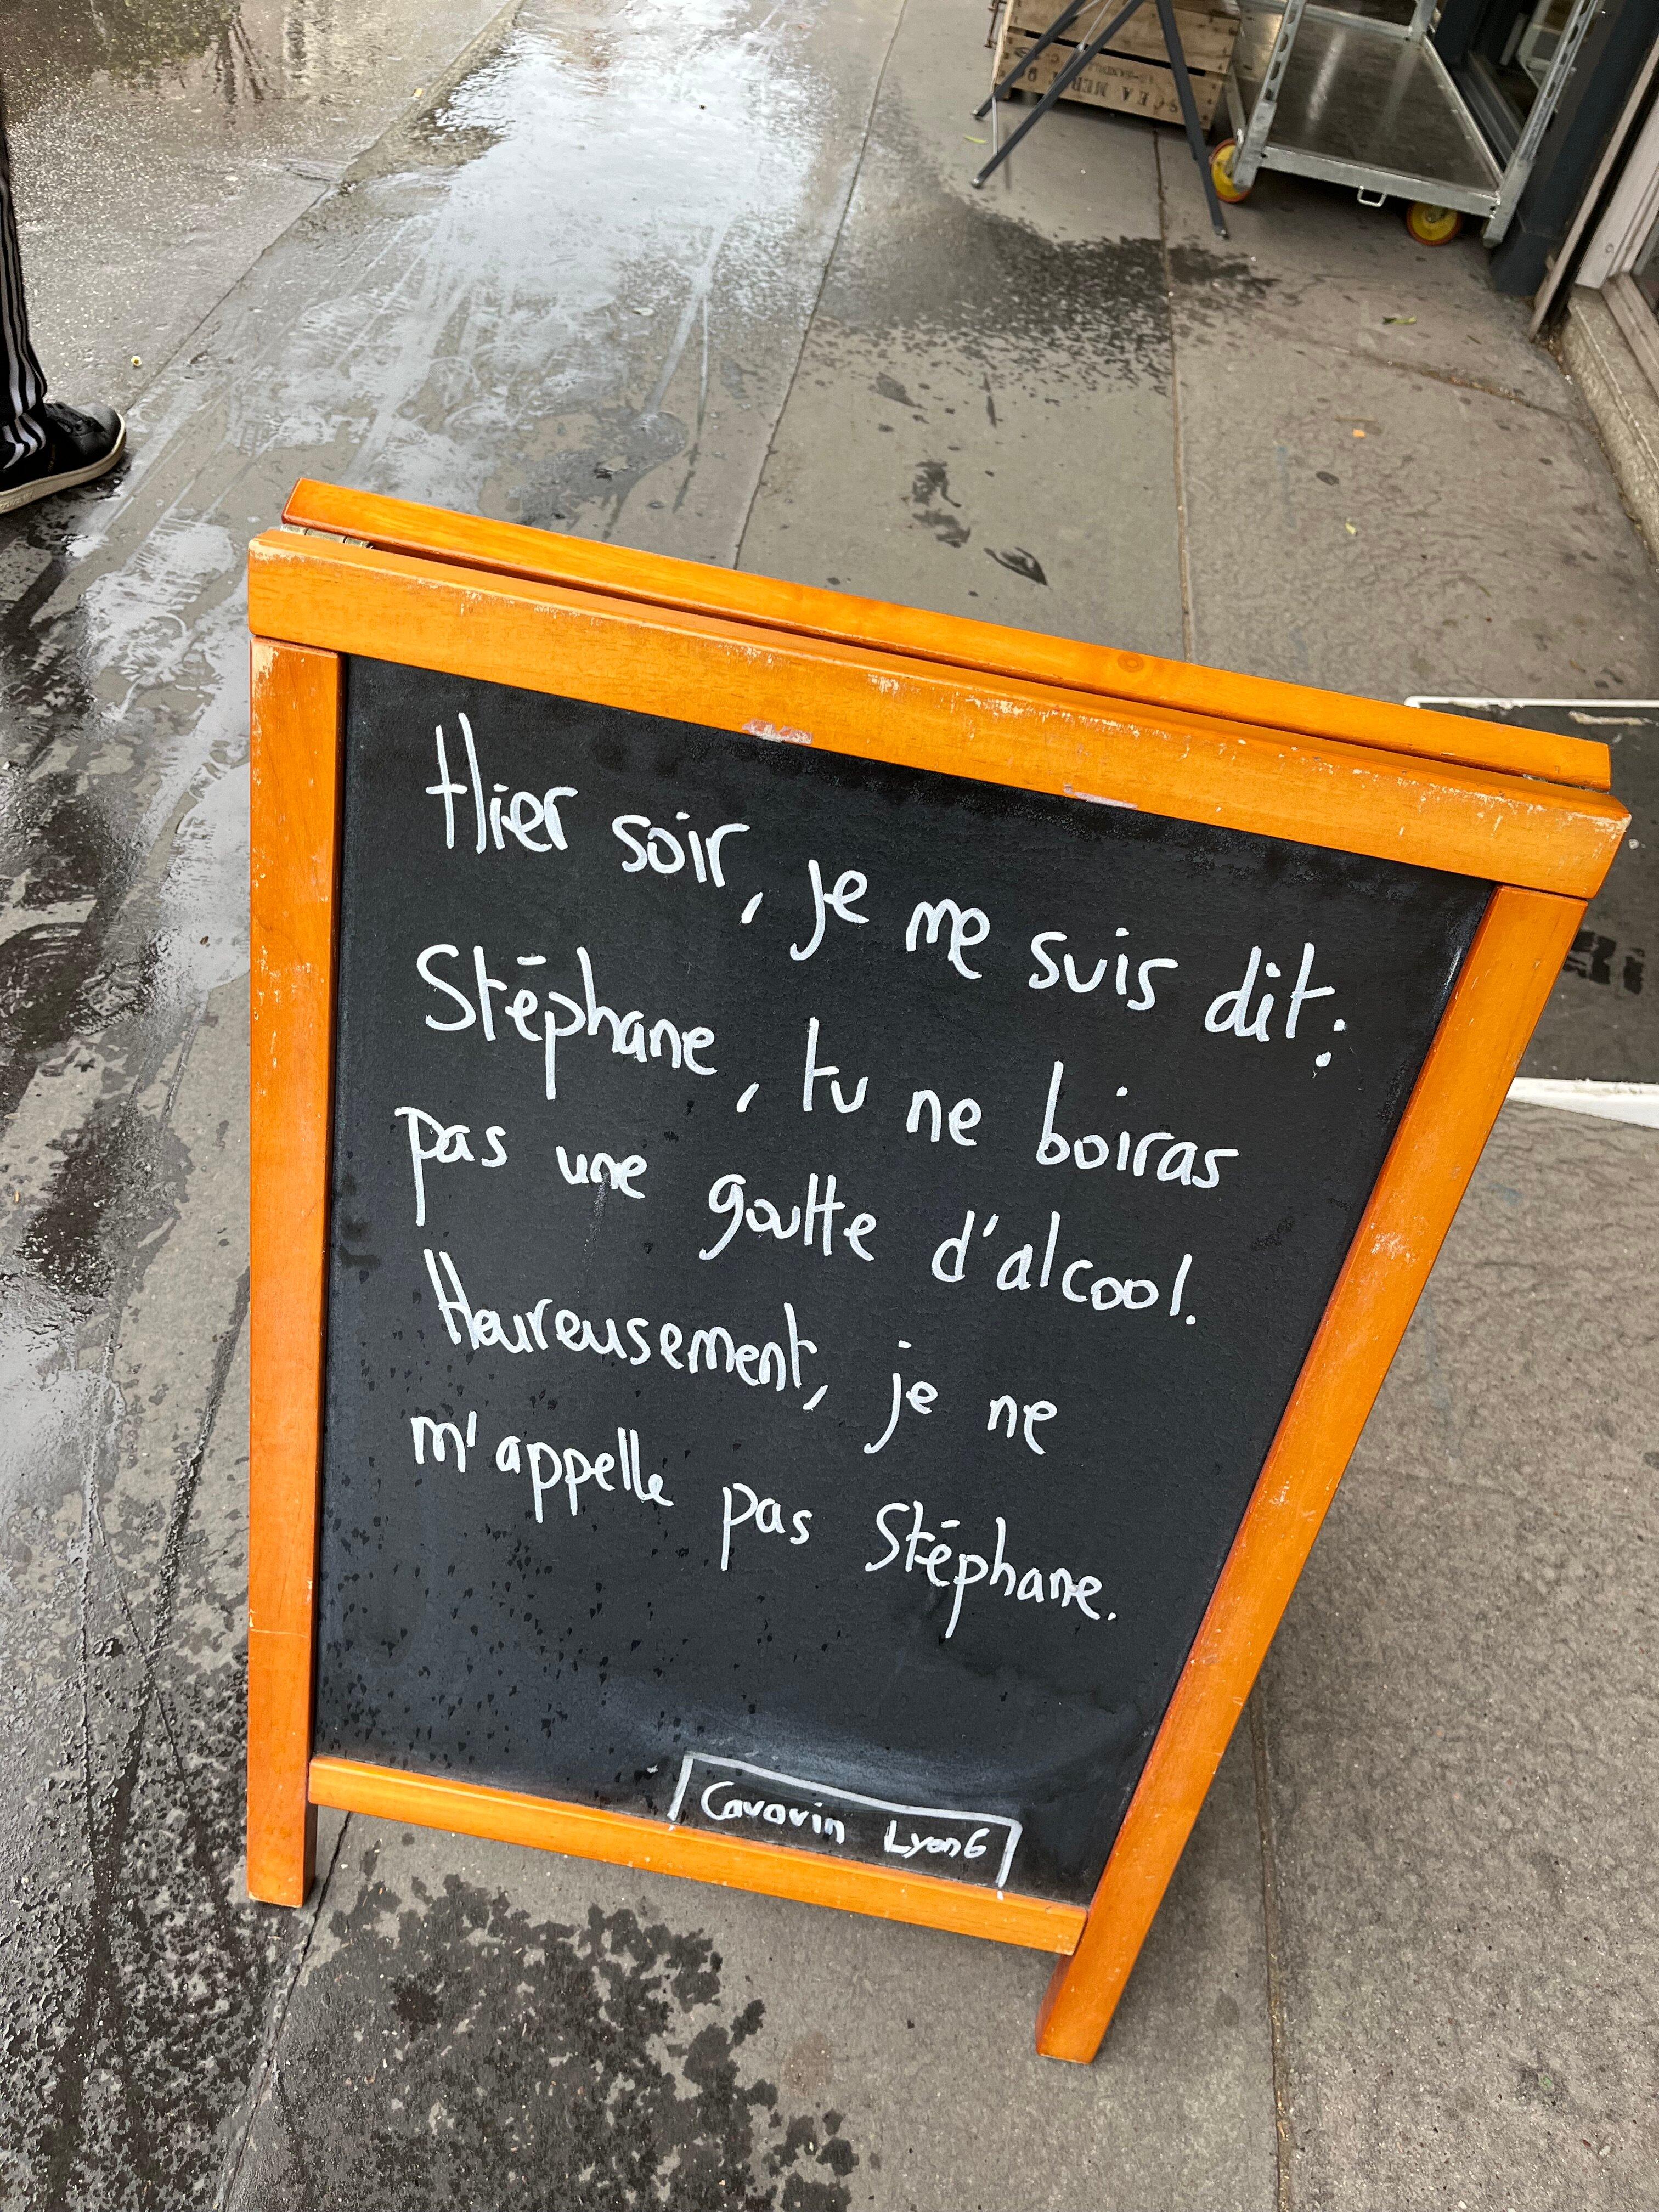 Hier soir, je me suis dit :
Stéphane, tu ne boiras
pas une goutte d'alcool.
Heureusement, je ne
m'appelle pas Stéphane.
Cavavin Lyon 6